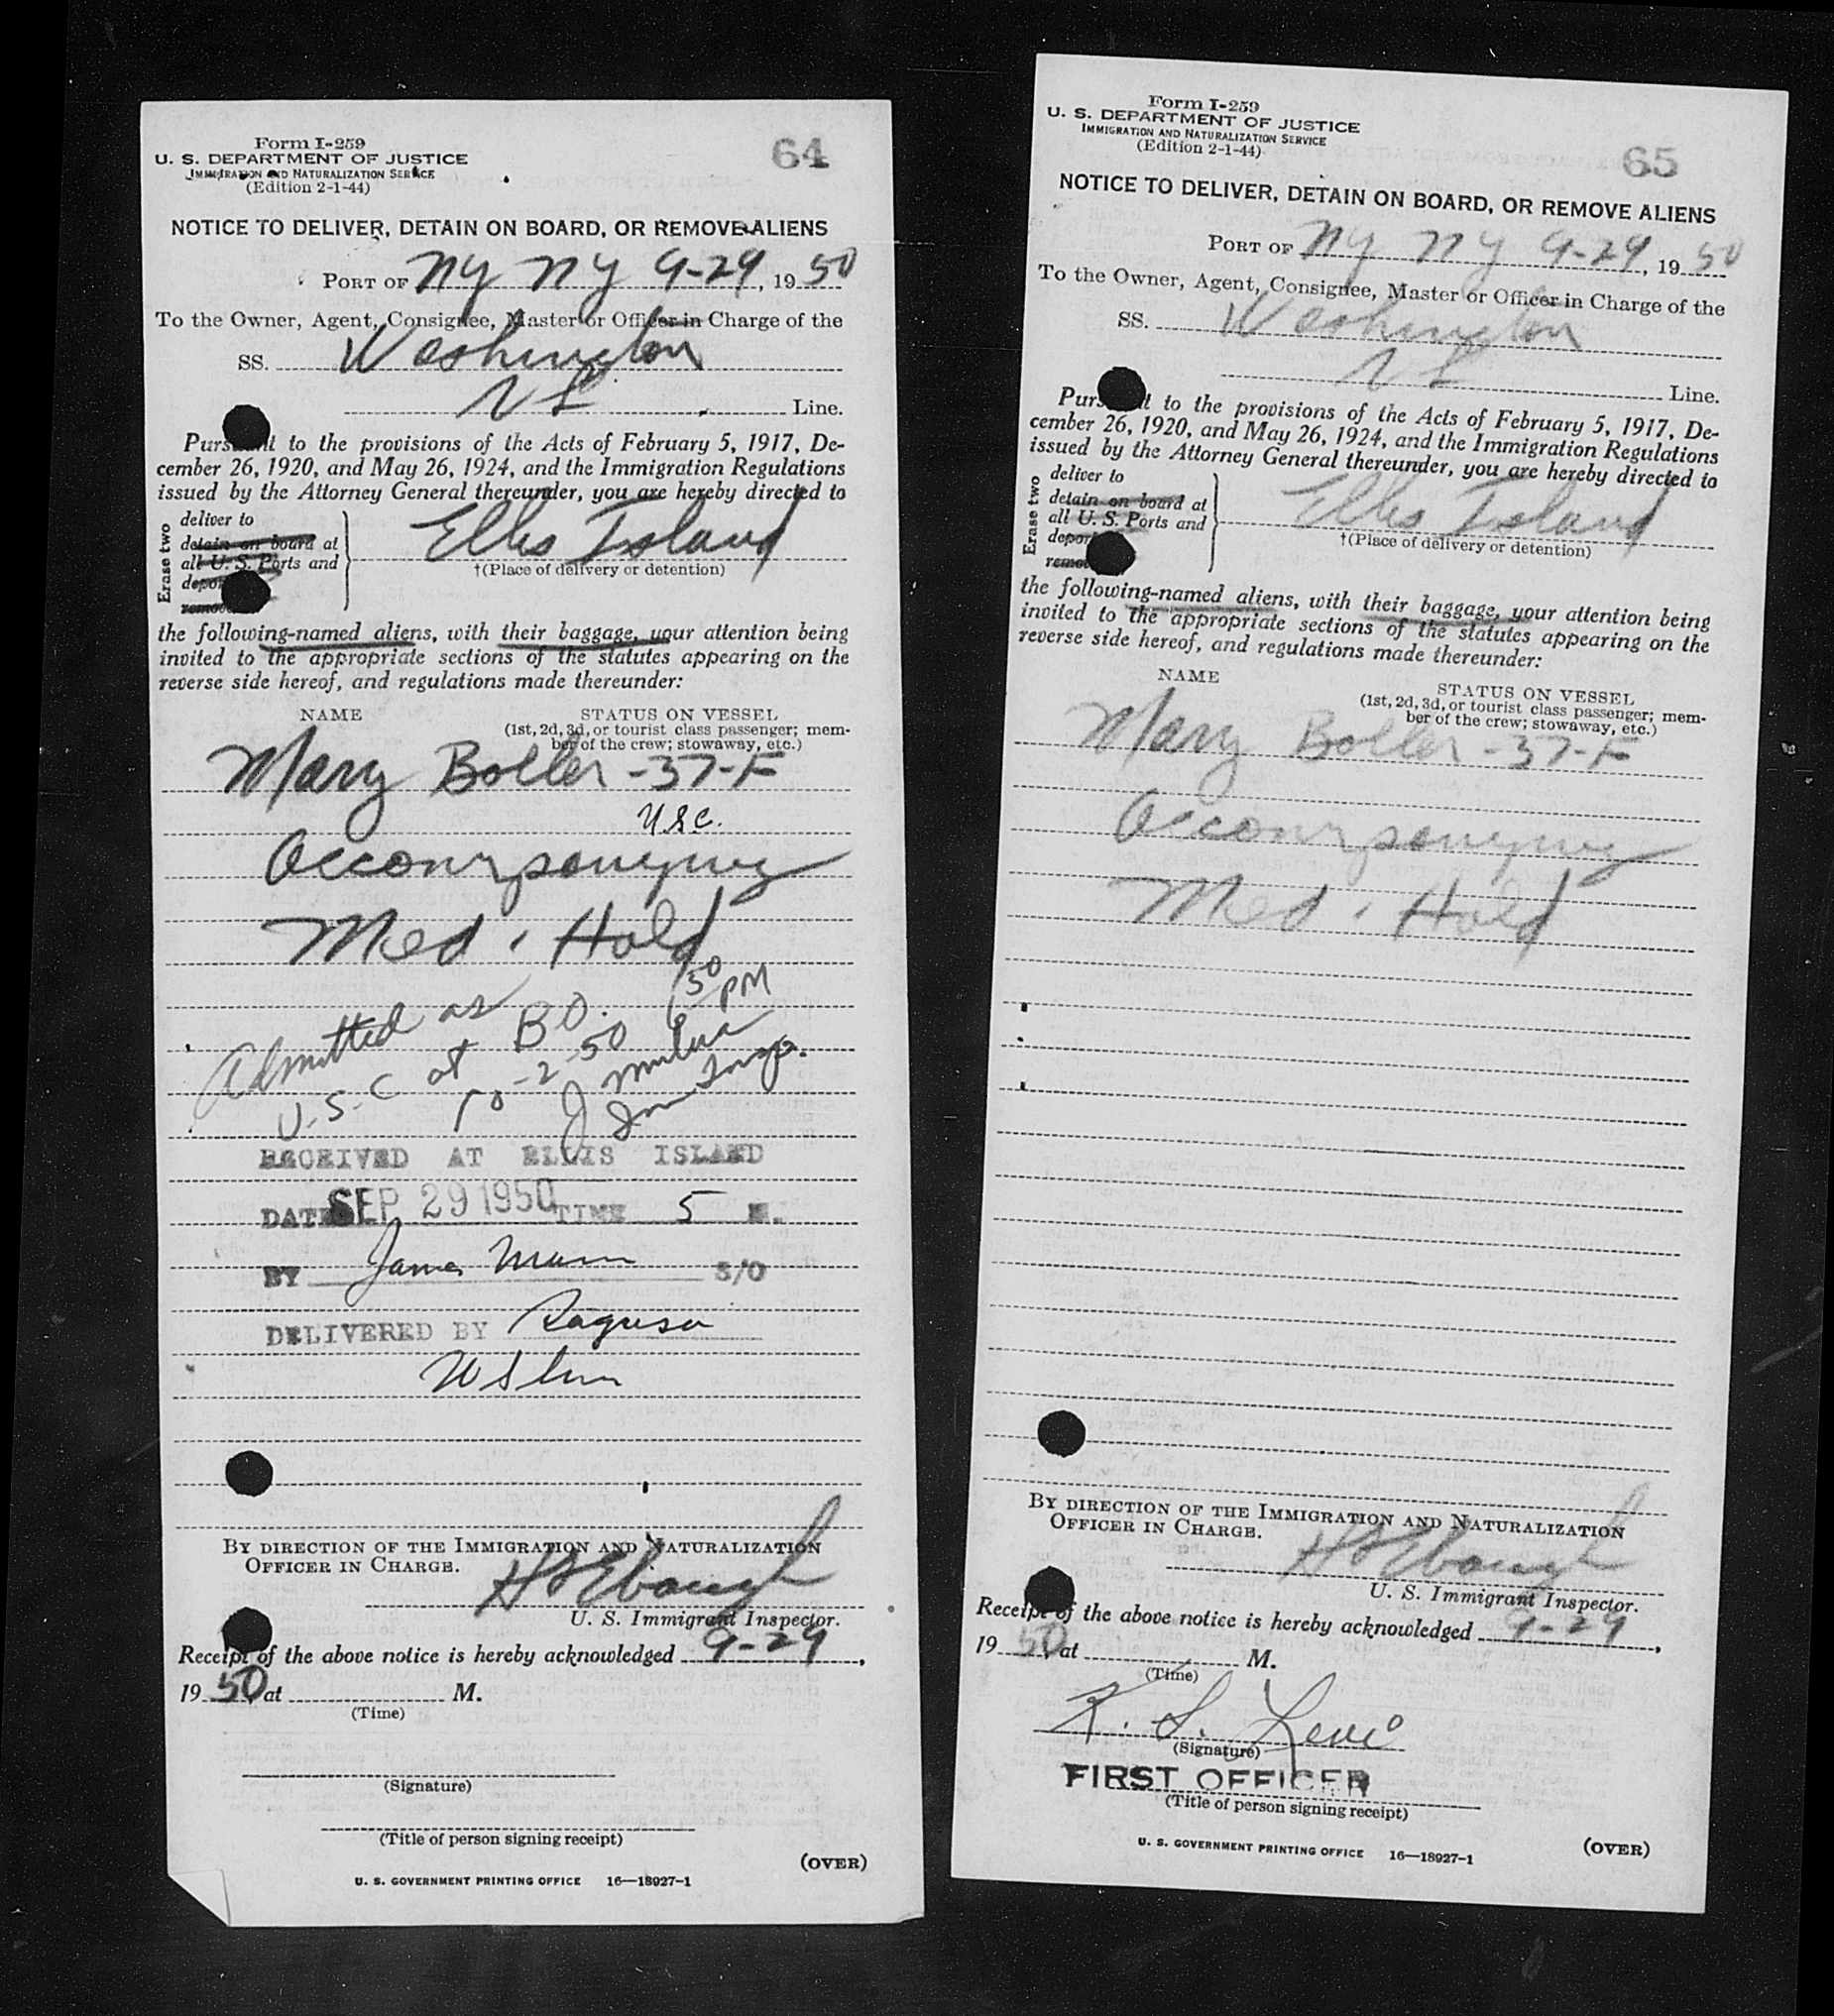 Form I-259
U. S. DEPARTMENT OF JUSTICE
IMMIGRATION AND NATURALIZATION SERVICE
(Edition 2-1-44)
64
NOTICE TO DELIVER, DETAIN ON BOARD, OR REMOVE ALIENS
PORT OF NY NY 9-29, 1950
To the Owner, Agent, Consignee, Master or Officer in Charge of the
SS. Washington
US Line.
Pursuant to the provisions of the Acts of February 5, 1917, De-
cember 26, 1920, and May 26, 1924, and the Immigration Regulations
issued by the Attorney General thereunder, you are hereby directed to
Erase two
deliver to
detain on board at
all U. S. Ports and
deport
remove
Ellis Island
†(Place of delivery or detention)
the following-named aliens, with their baggage, your attention being
invited to the appropriate sections of the statutes appearing on the
reverse side hereof, and regulations made thereunder:
NAME
STATUS ON VESSEL
(1st, 2d, 3d, or tourist class passenger; mem-
ber of the crew; stowaway, etc.)
Mary Boller - 37-F
USC.
Accompanying
Med. Hold
Admitted as
U.S.C at B O. 50 PM
10-2-50
J
RECEIVED AT ELLIS ISLAND
DATE SEP 29 1950 TIME 5 M.
BY James S/O
DELIVERED BY Ragusa
BY DIRECTION OF THE IMMIGRATION AND NATURALIZATION
OFFICER IN CHARGE.
Ebaugh
U. S. Immigrant Inspector.
Receipt of the above notice is hereby acknowledged 9-29,
1950 at M.
(Time)
(Signature)
(Title of person signing receipt)
(OVER)
U. S. GOVERNMENT PRINTING OFFICE 16—18927-1
Form I-259
U. S. DEPARTMENT OF JUSTICE
IMMIGRATION AND NATURALIZATION SERVICE
(Edition 2-1-44)
65
NOTICE TO DELIVER, DETAIN ON BOARD, OR REMOVE ALIENS
PORT OF NY NY 9-29, 1950
To the Owner, Agent, Consignee, Master or Officer in Charge of the
SS. Washington
US Line.
Pursuant to the provisions of the Acts of February 5, 1917, De-
cember 26, 1920, and May 26, 1924, and the Immigration Regulations
issued by the Attorney General thereunder, you are hereby directed to
Erase two
deliver to
detain on board at
all U. S. Ports and
deport
remove
Ellis Island
†(Place of delivery or detention)
the following-named aliens, with their baggage, your attention being
invited to the appropriate sections of the statutes appearing on the
reverse side hereof, and regulations made thereunder:
NAME
STATUS ON VESSEL
(1st, 2d, 3d, or tourist class passenger; mem-
ber of the crew; stowaway, etc.)
Mary Boller - 37-F
Accompanying
Med. Hold
BY DIRECTION OF THE IMMIGRATION AND NATURALIZATION
OFFICER IN CHARGE.
Ebaugh
U. S. Immigrant Inspector.
Receipt of the above notice is hereby acknowledged 9-29,
1950 at M.
(Time)
K. S. Levi
(Signature)
FIRST OFFICER
(Title of person signing receipt)
(OVER)
U. S. GOVERNMENT PRINTING OFFICE 16—18927-1